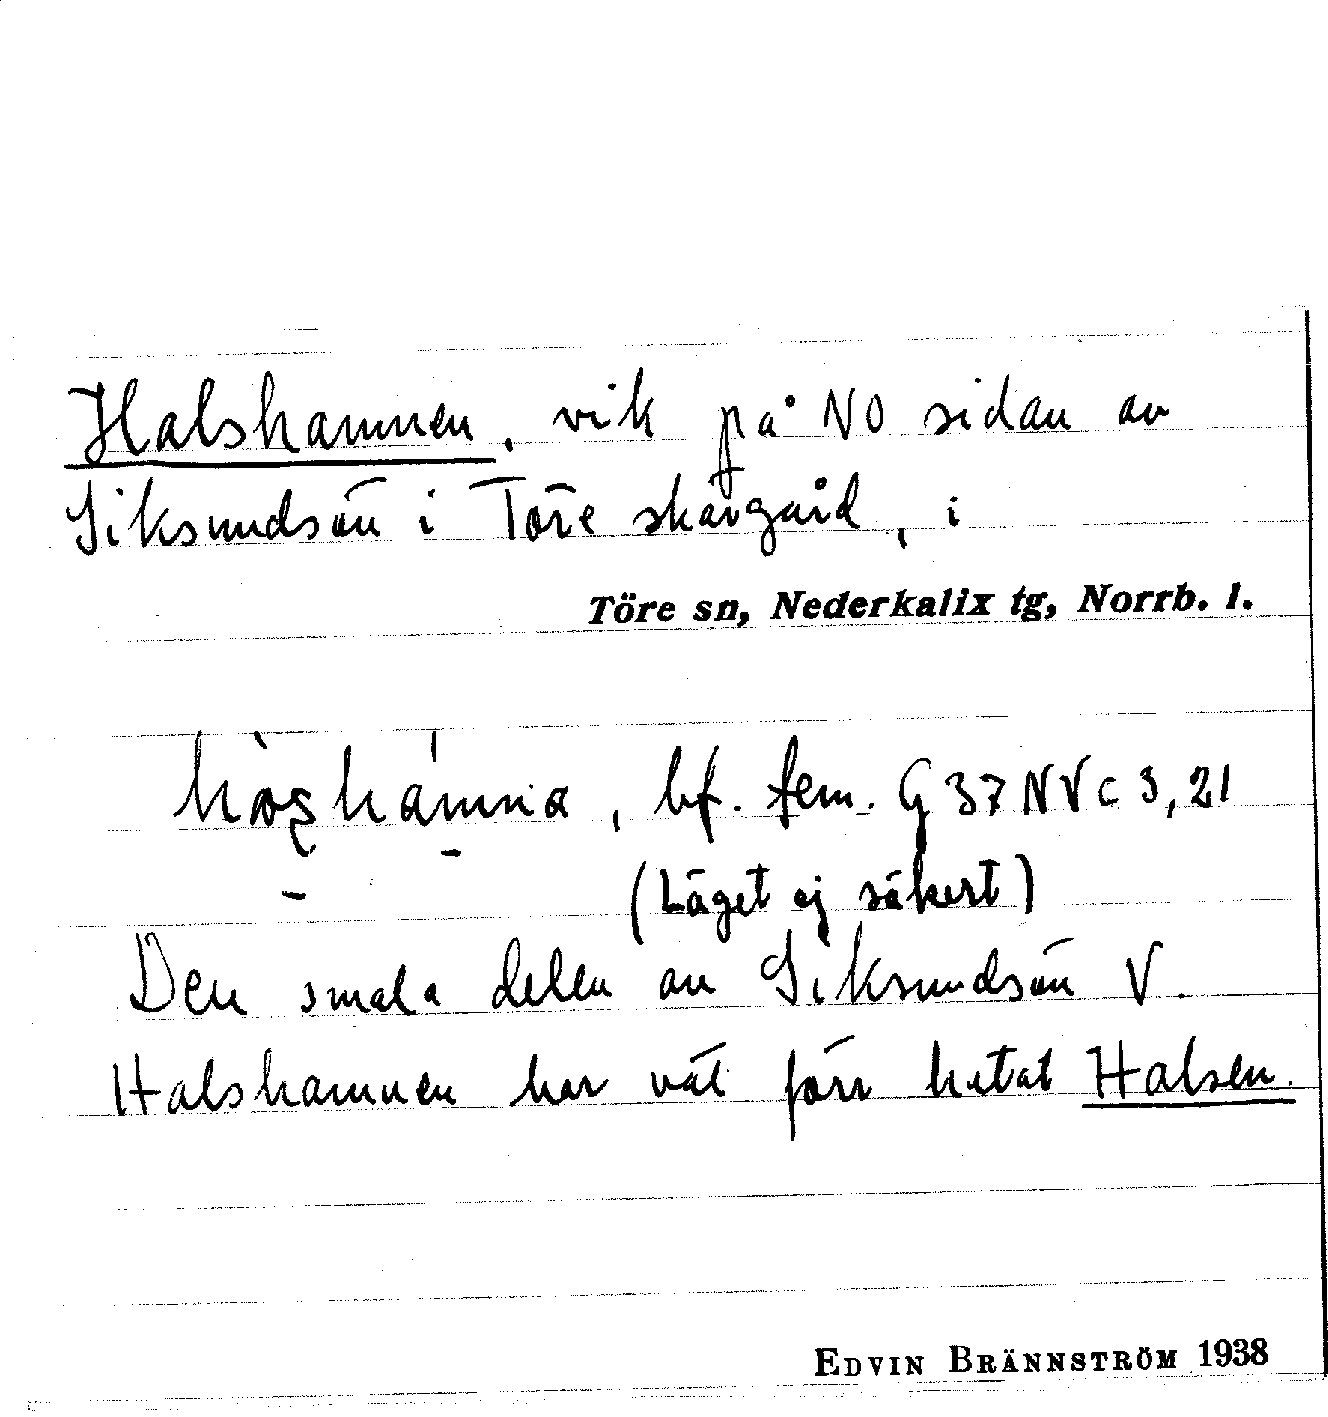 Halshamnen, vik på NO sidan av
Siksundsön i Töre skärgård, i
Töre sn, Nederkalix tg, Norrb. l.
, bf. fem. G 37 NV c 3, 21
(Läget ej säkert)
Den smala delen av Siksundsön V.
Halshamnen har väl förr hetat Halsen.
EDVIN BRÄNNSTRÖM 1938